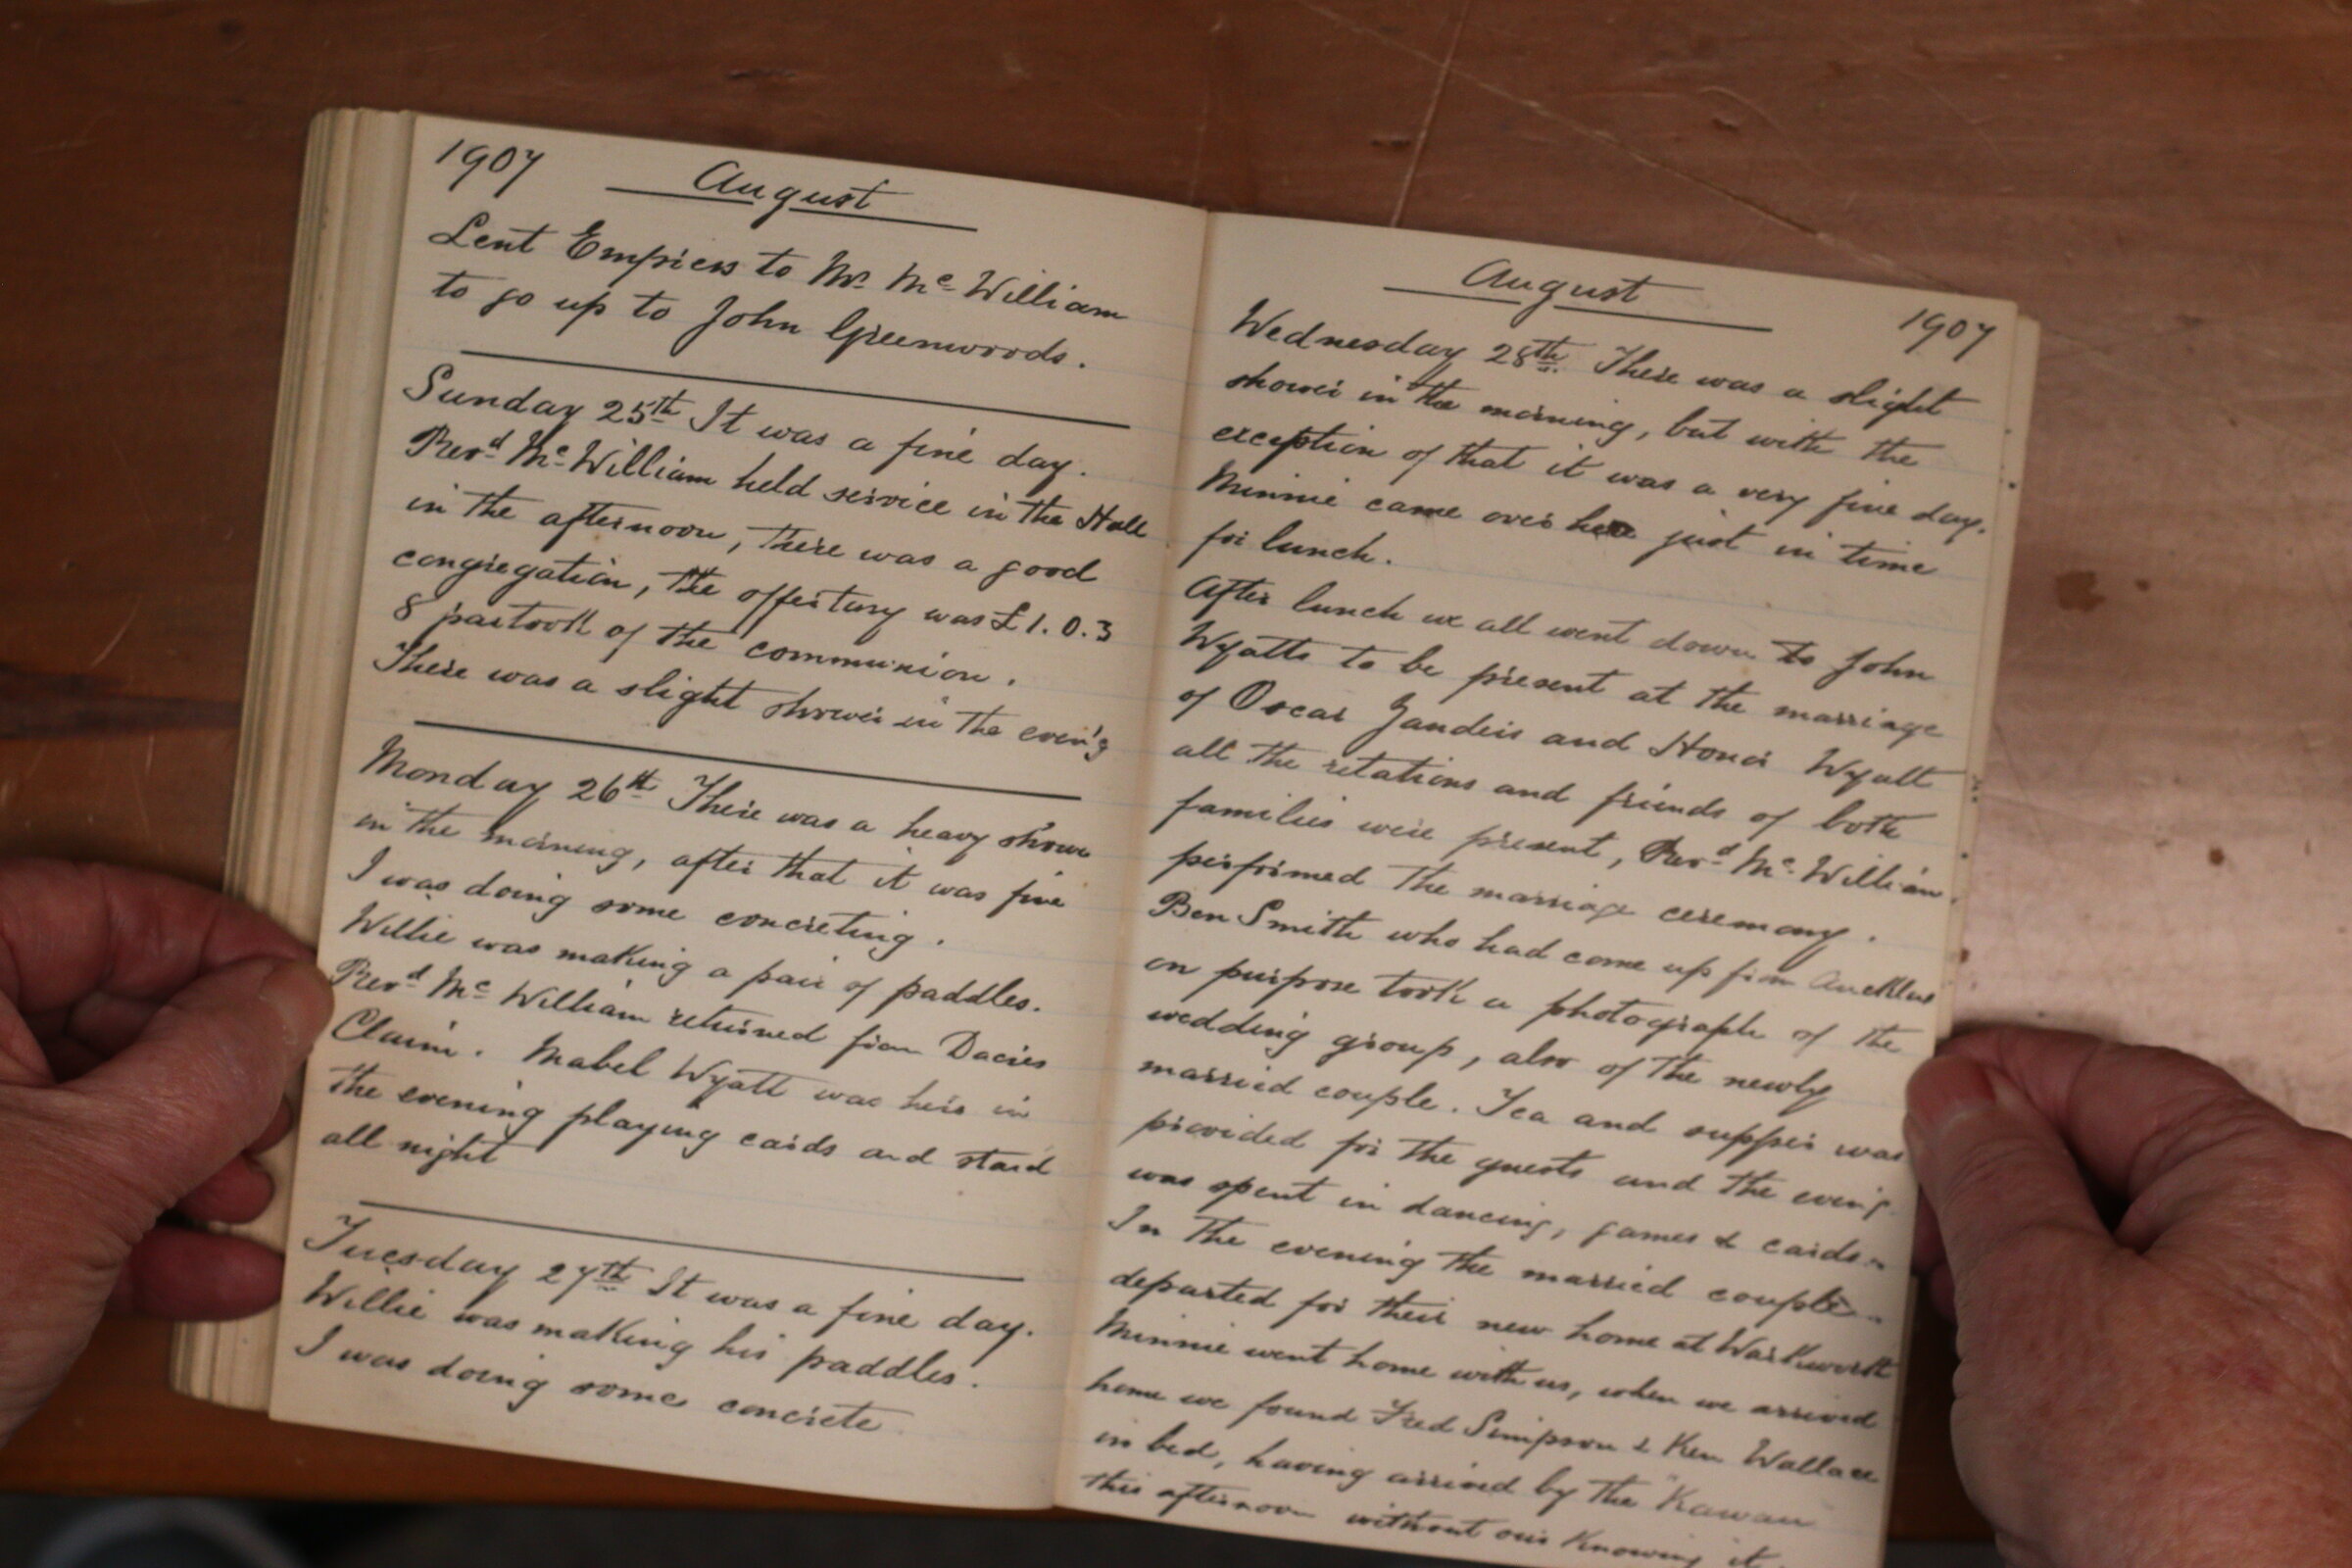 1907 August
Lent Empress to Mr. Mc William
to go up to John Greenwoods.
Sunday 25th It was a fine day.
Revd Mc William held service in the Hall
in the afternoon, there was a good
congregation, the offertory was £1.0.3
8 partook of the communion.
There was a slight shower in the even'g
Monday 26th There was a heavy shower
in the morning, after that it was fine
I was doing some concreting.
Willie was making a pair of paddles.
Revd Mc William returned from Davies
Claim. Mabel Wyatt was here in
the evening playing cards and staid
all night
Tuesday 27th It was a fine day.
Willie was making his paddles.
I was doing some concrete
August 1907
Wednesday 28th There was a slight
shower in the morning, but with the
exception of that it was a very fine day.
Minnie came over here just in time
for lunch.
After lunch we all went down to John
Wyatts to be present at the marriage
of Oscar Zanders and Honor Wyatt
all the relations and friends of both
families were present, Revd Mc William
performed the marriage ceremony.
Ben Smith who had come up from Auckland
on purpose took a photograph of the
wedding group, also of the newly
married couple. Tea and supper was
provided for the guests and the even'g
was spent in dancing, games & cards
In the evening the married couple
departed for their new home at Warkworth
Minnie went home with us, when we arrived
home we found Fred Simpson & Ken Wallace
in bed, having arrived by the "Kawau
this afternoon without our knowing it.